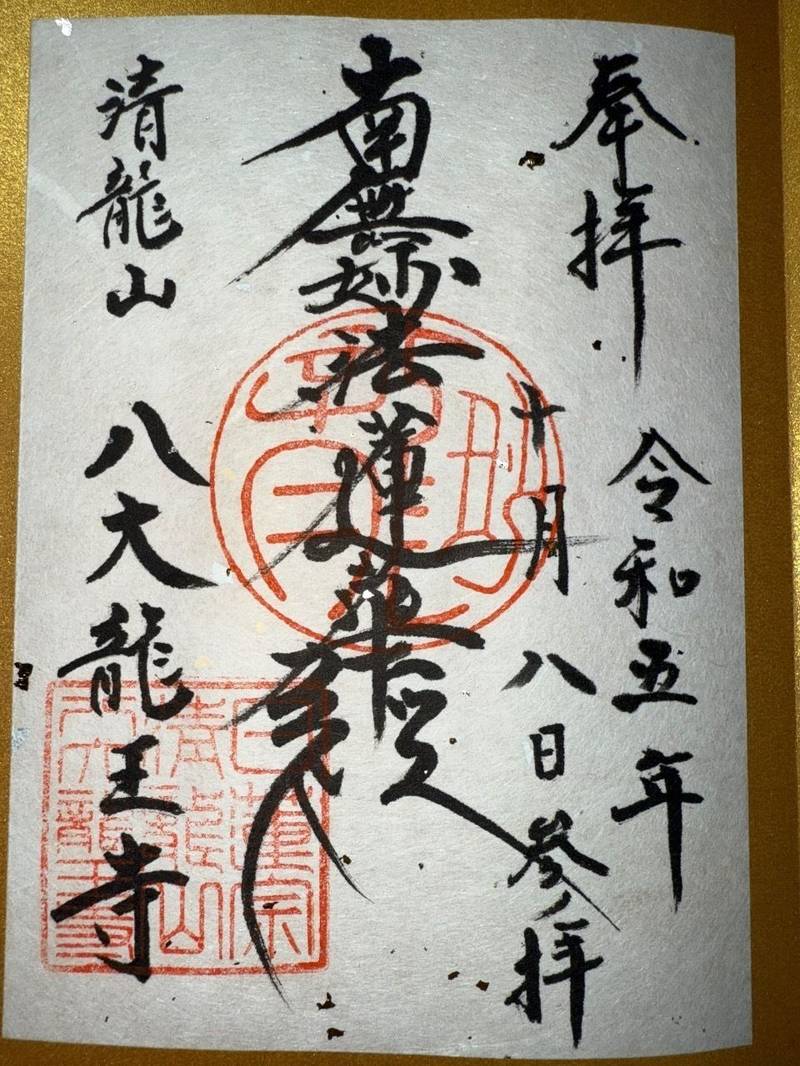 奉拝
令和五年
十月八日参拝
南無妙法蓮華経
清龍山
八大龍王寺
日蓮宗
清龍山
八大龍王寺